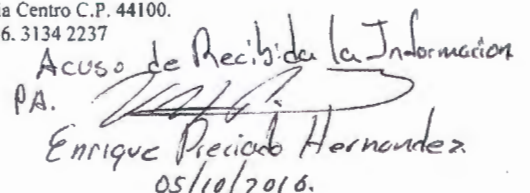 ia Centro C.P. 44100.
6. 3134 2237
Acuso de Recibida la Informacion
PA.
Enrique Preciado Hernandez
05/10/2016.